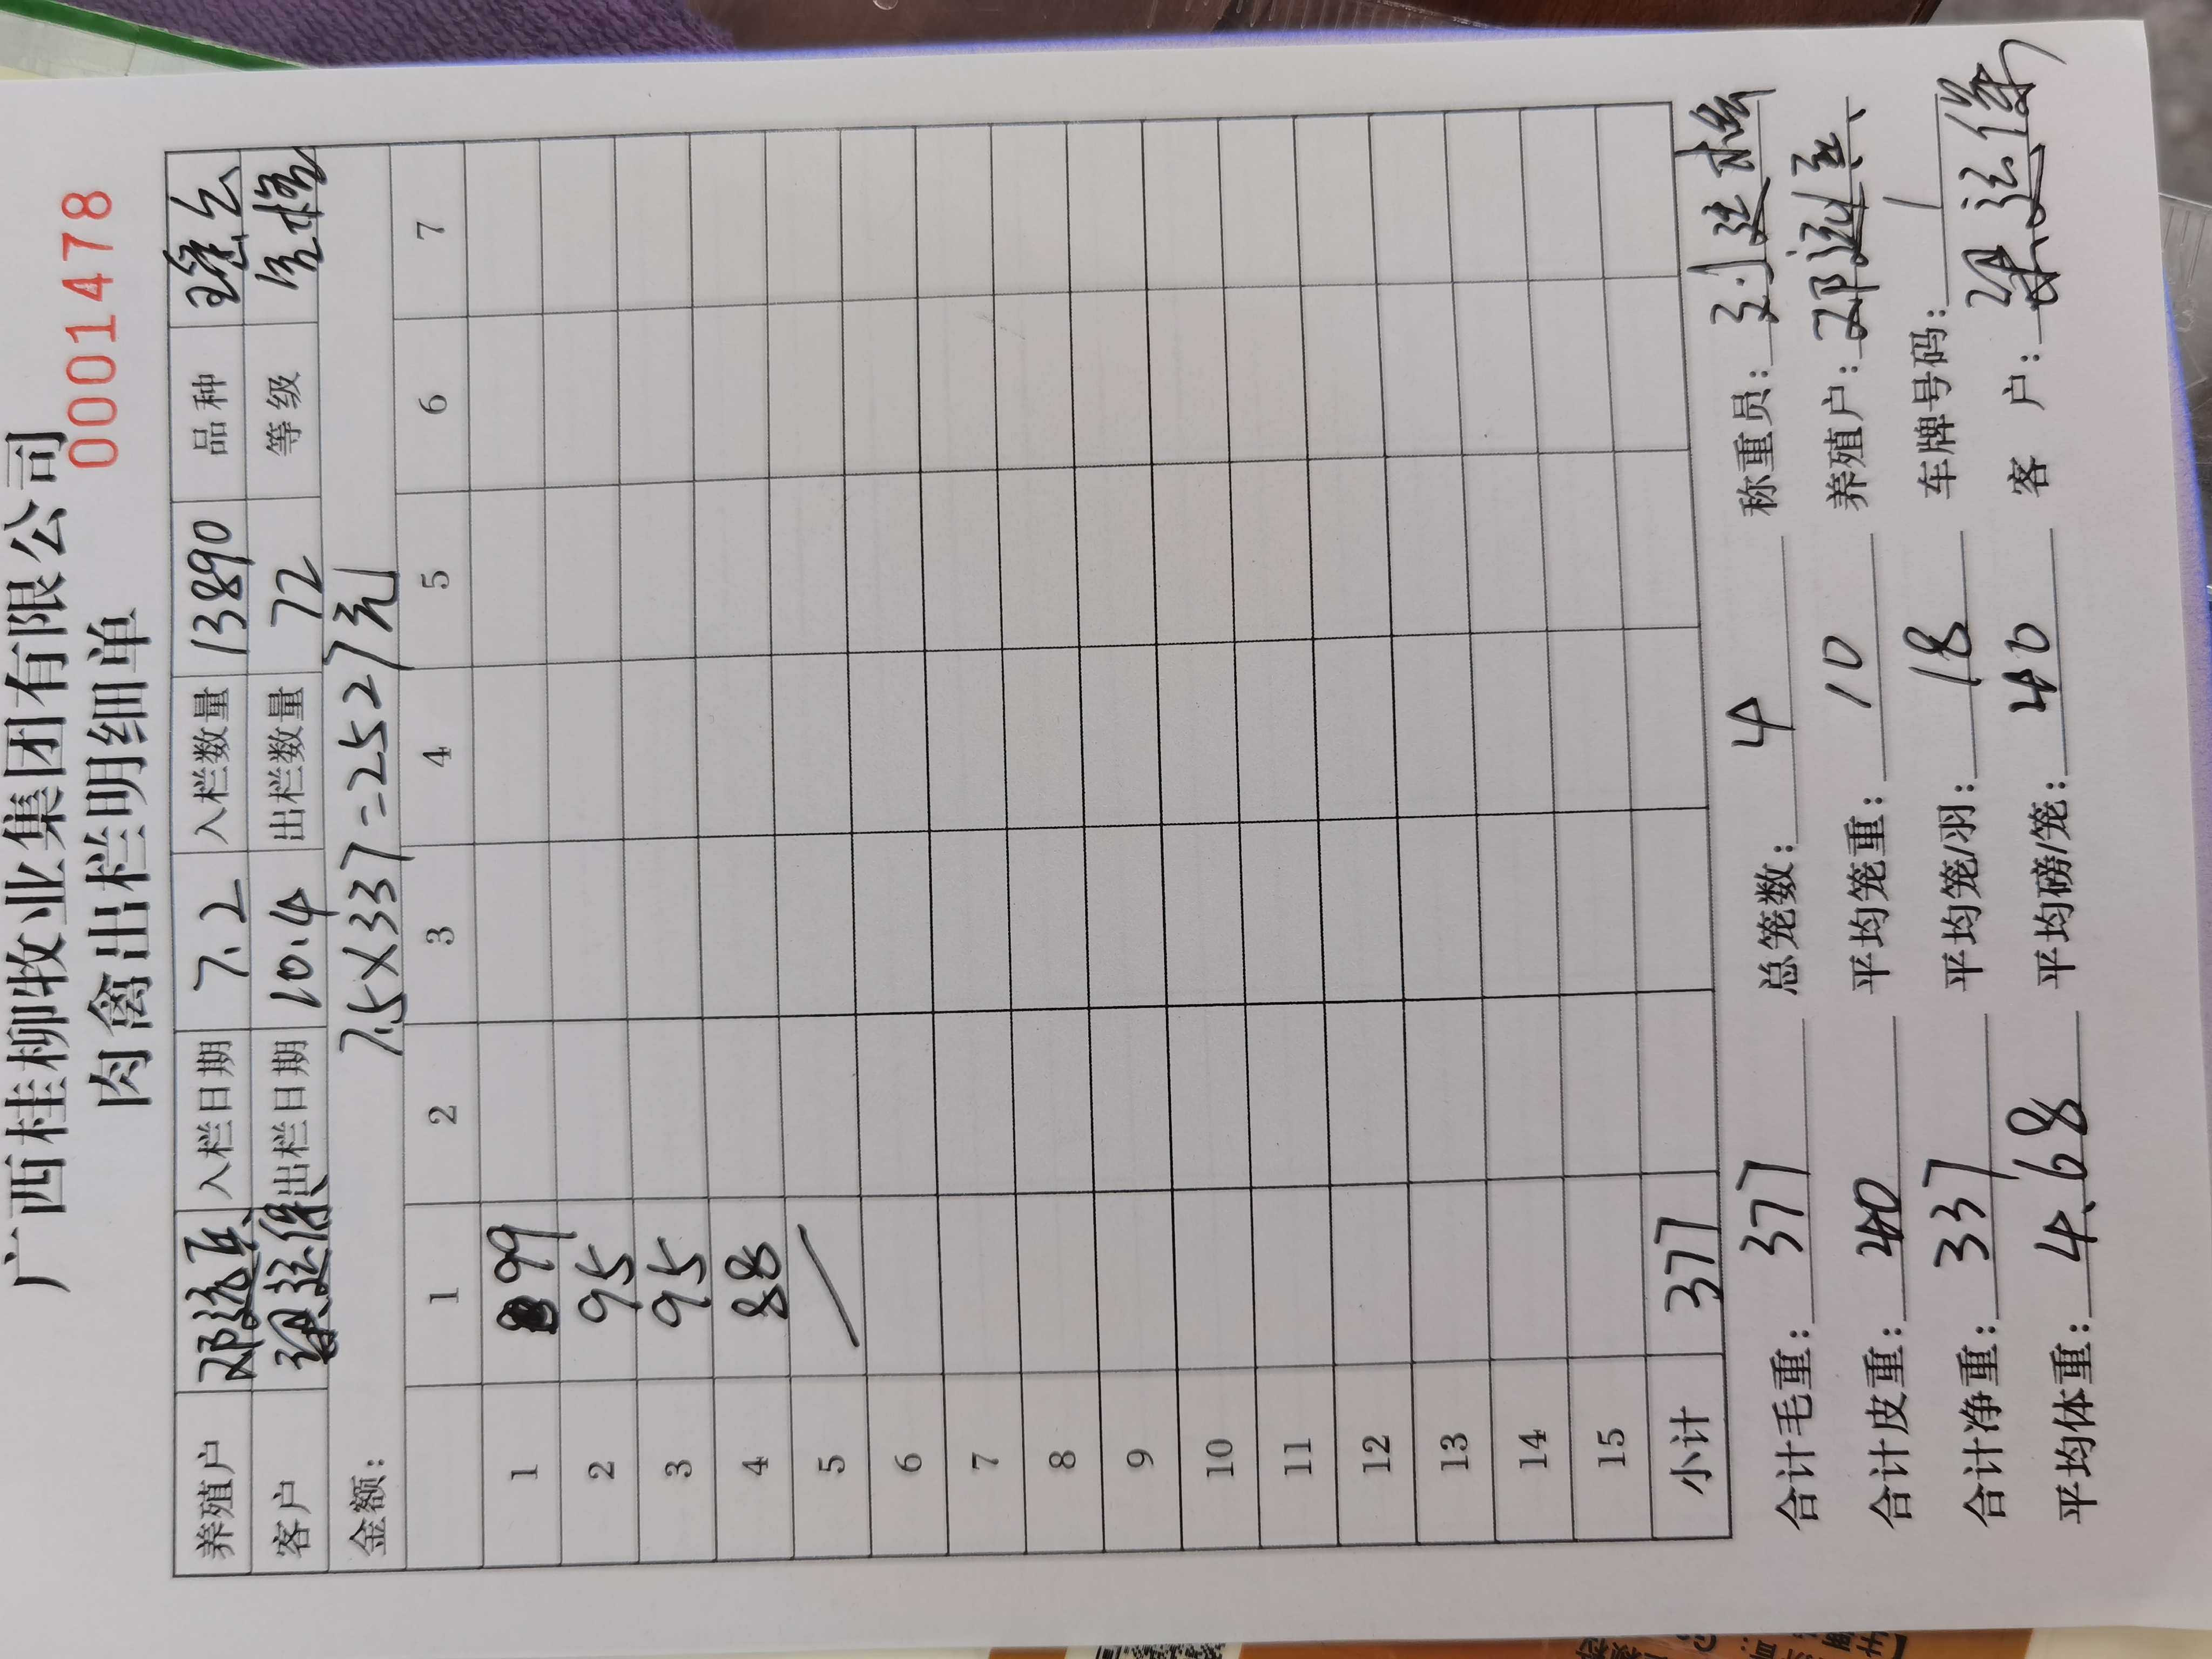 广西桂柳牧业集团有限公司
肉禽出栏明细单 0001478
养殖户 邓远兵 入栏日期 7.2 入栏数量 13890 品种
客户 梁廷伟 出栏日期 10.4 出栏数量 72 等级
金额: 7.5×337=2527元
1 2 3 4 5 6 7
1 99
2 95
3 95
4 88
5
6
7
8
9
10
11
12
13
14
15
小计 377
合计毛重: 377 总笼数: 4 称重员: 刘廷
合计皮重: 40 平均笼重: 10 养殖户: 邓远兵
合计净重: 337 平均笼/羽: 18 车牌号码: /
平均体重: 4.68 平均磅/笼: 40 客 户: